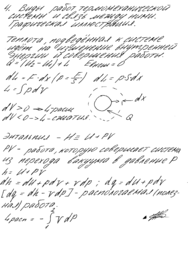 4. Виды работ термомеханической
системы и связь между ними.
Графическая иллюстрация.
Теплота, подведённая к системе
идёт на изменение внутренней
энергии и совершение работы.
U = (U₂ - U₁) + L
dL = F dx (P = F/S) dL = pSdx
L = PdV
dx
dV > 0 → L расш
dV < 0 → L - сжатия
Q
Энтальпия - H = U + PV
PV - работа, которую совершает система
из перехода вакуума в давление P
h = U + PV
dh = dU + pdv + vdp; dq = dU + pdv
[dq = dh - vdp] - располагаемая (
работа.
L расп = - ∫ V dP